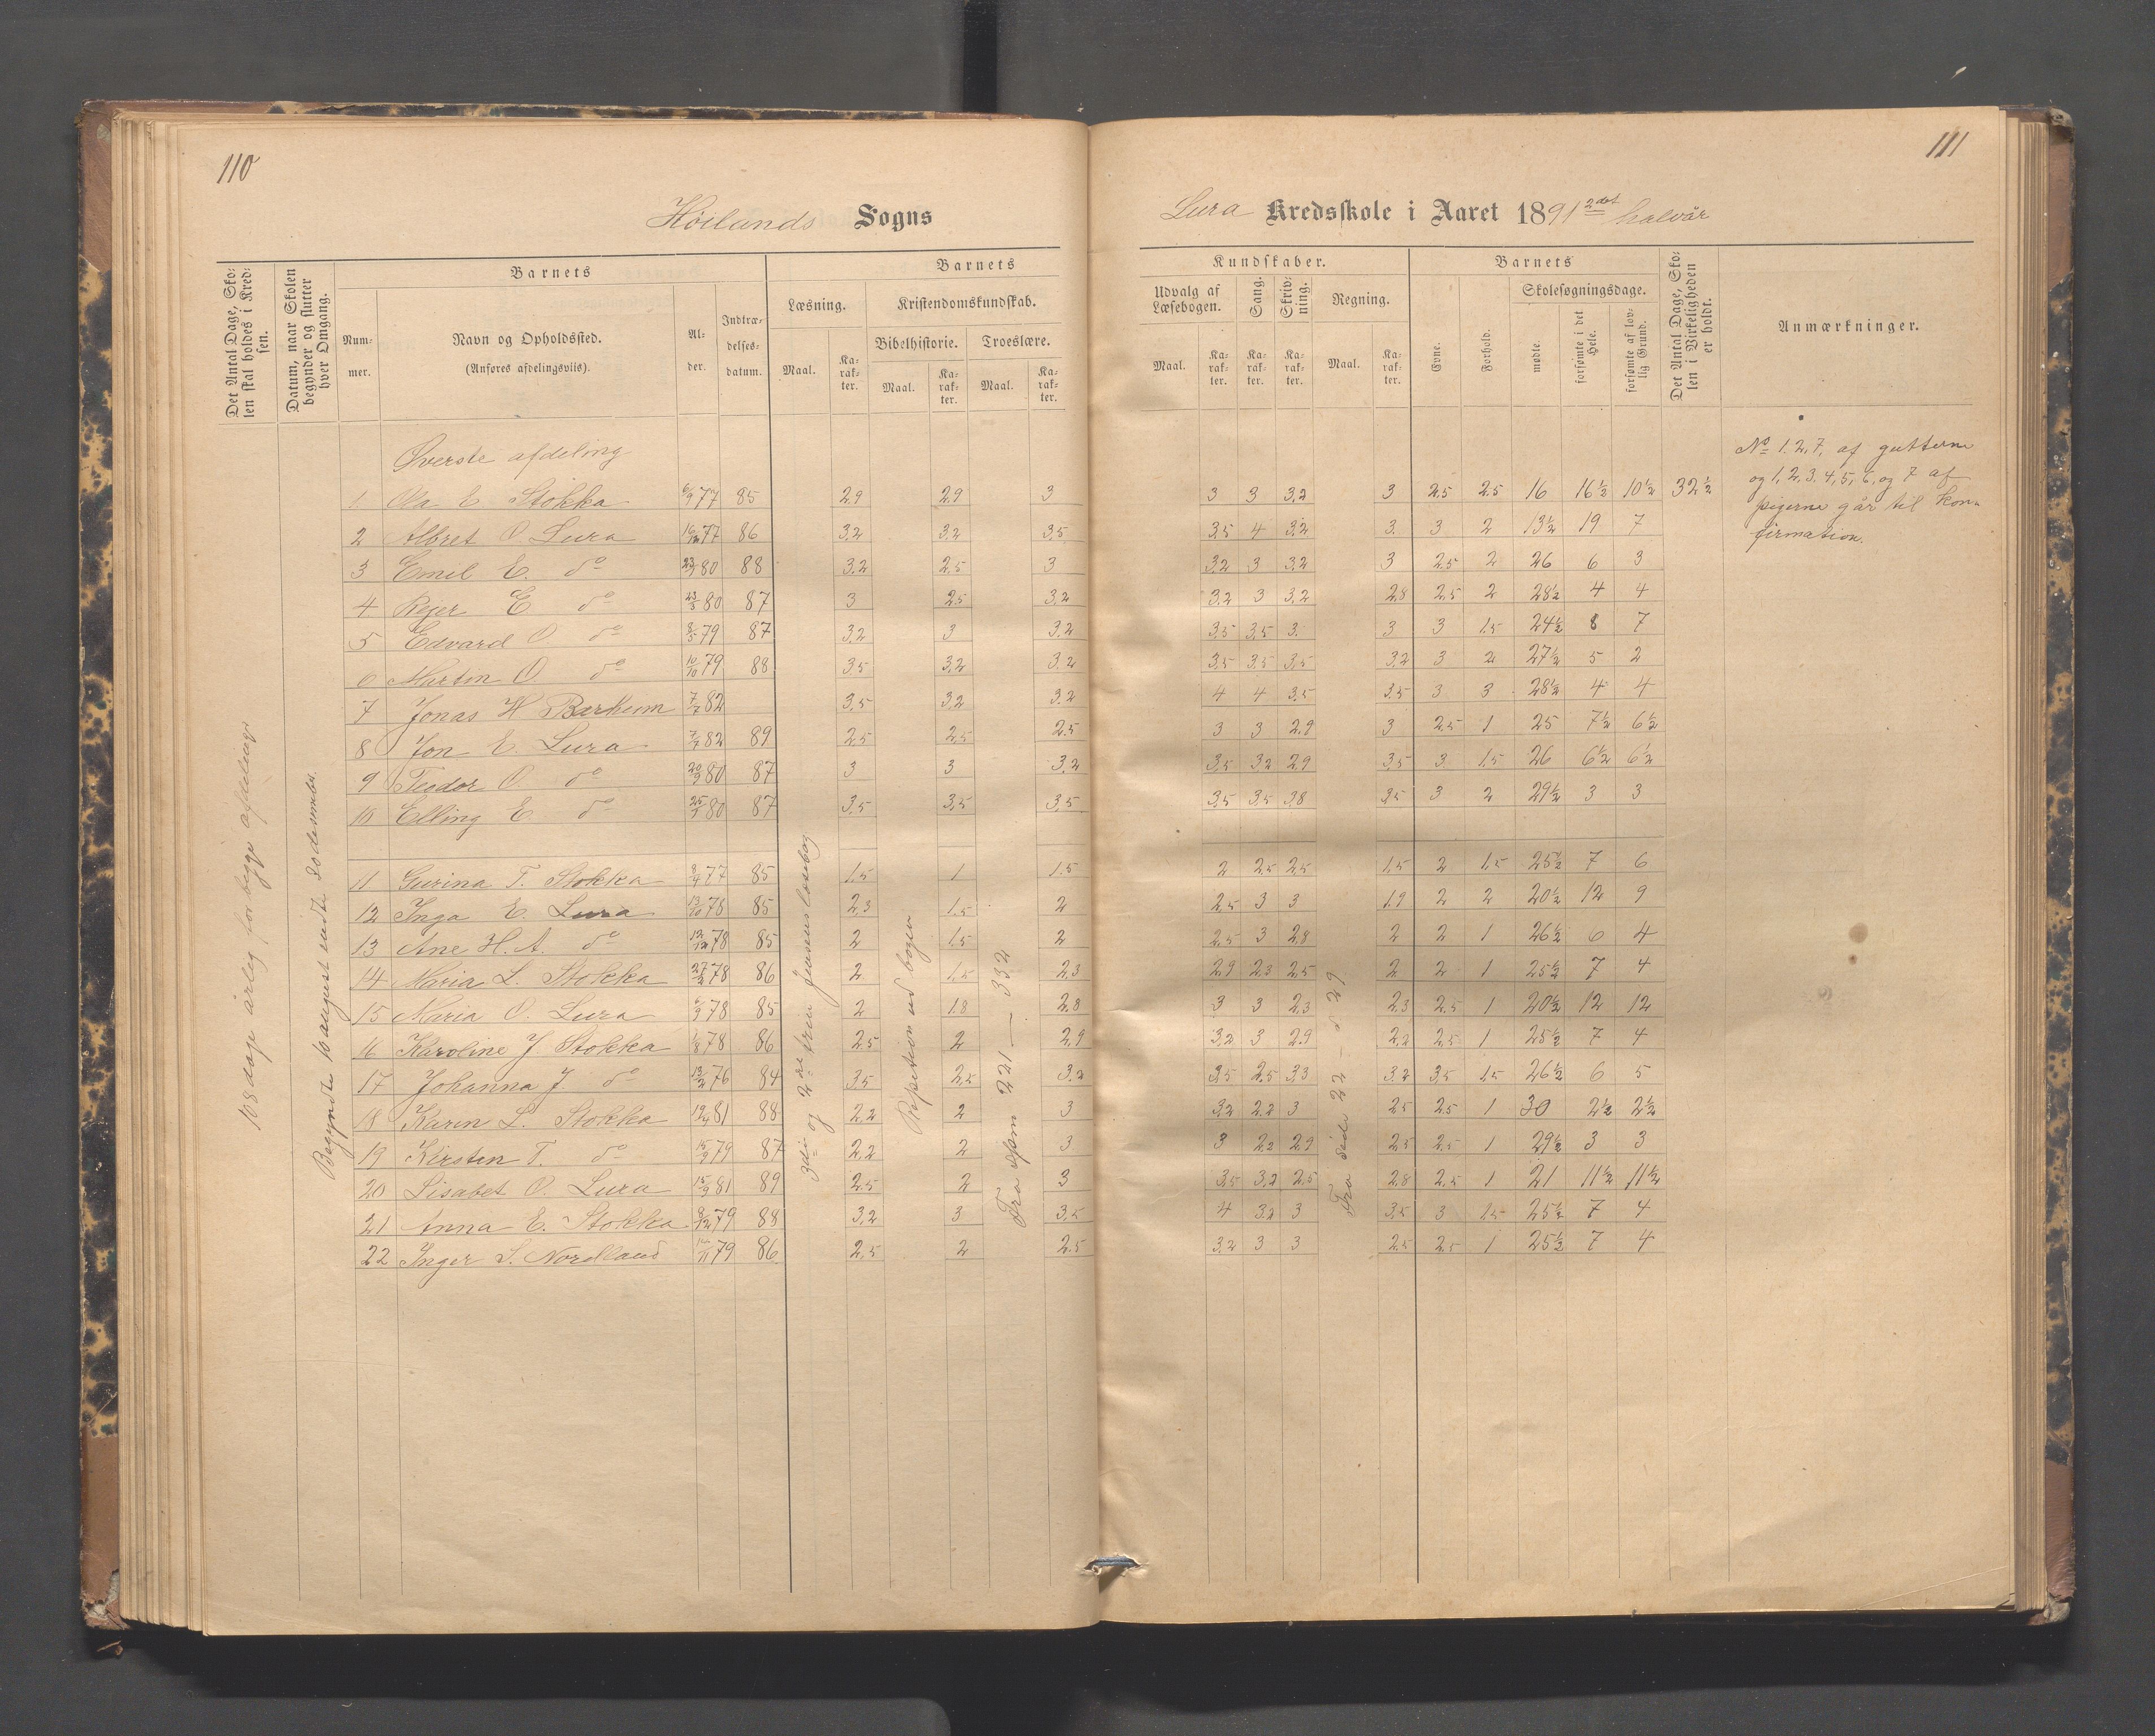 110
Höilands Sogns
Det Antal Dage, Sko-
len skal holdes i Kred-
sen.
Datum, naar Skolen
begynder og slutter
hver Omgang.
Barnets
Num-
mer.
Navn og Opholdssted.
(Anføres afdelingsvis).
Al-
der.
Indtræ-
delses-
datum.
Barnets
Læsning.
Maal.
Ka-
rak-
ter.
Kristendomskundskab.
Bibelhistorie.
Maal.
Ka-
rak-
ter.
Troeslære.
Maal.
Ka-
rak-
ter.
108 dage årleg for begge afdelinger
Begyndte 10 august endte 2 desember.
3die og 2det trin Jensens læsebog
Repetition ud bogen
Fra spm 221 — 332
Øverste afdeling
1 Ola E Stokka 6/9 77 85 2,9 2,9 3
2 Albret O. Lura 16/12 77 86 3,2 3,2 3,5
3 Emil E. do 80 88 3,2 2,5 3
4 Reier E do 23/3 80 87 3 2,5 3,2
5 Edvard O do 8/5 79 87 3,2 3 3,2
6 Martin O do 10/10 79 88 3,5 3,2 3,2
7 Jonas H Bærheim 7/7 82 3,5 3,2 3,2
8 Jon E. Lura 7/7 82 89 2,5 2,5 2,5
9 Teodor O. do 20/9 80 87 3 3 3,2
10 Elling E do 25/9 80 87 3,5 3,5 3,5
11 Gurina T. Stokka 8/4 77 85 1,5 1 1.5
12 Inga E. Lura 13/10 78 85 2,3 1.5 2
13 Ane H. A. do 12/12 78 85 2 1,5 2
14 Maria L. Stokka 27/2 78 86 2 1,5 2,3
15 Maria O. Lura 6/9 78 85 2 1.8 2,8
16 Karoline J. Stokka 1/8 78 86 2,5 2 2,9
17 Johanna J. do 13/2 76 84 3,5 2,5 3,2
18 Karen L. Stokka 12/4 81 88 2,2 2 3
19 Kirsten T. do 15/9 79 87 2,2 2 3
20 Lisabet O. Lura 15/9 81 89 2,5 2 3
21 Anna E. Stokka 8/12 79 88 3,2 3 3,5
22 Inger S. Nordland 79 86 2,5 2 2,5
111
Lura Kredsskole i Aaret 1891 2det halvår
Kundskaber.
Udvalg af
Læsebogen.
Maal.
Ka-
rak-
ter.
Sang.
Ka-
rak-
ter.
Skriv-
ning.
Ka-
rak-
ter.
Regning.
Maal.
Ka-
rak-
ter.
Barnets
Evne.
Forhold.
Skolesøgningsdage.
mødte.
forsømte i det
Hele.
forsømte af lov-
lig Grund.
Det Antal Dage, Sko-
len i Virkeligheden
er holdt.
Anmærkninger.
No 1. 2, 7, af gutterne
og 1, 2, 3, 4, 5, 6, og 7 af
pigerne går til kon-
firmation.
Fra side 22 - 29
3 3 3,2 3 2,5 2,5 16 16½ 10½ 32½
3,5 4 3,2 3. 3 2 13½ 19 7
3,2 3 3,2 3 2,5 2 26 6 3
3,2 3 3,2 2,8 2,5 2 28½ 4 4
3,5 3,5 3. 3 3 1.5 24½ 8 7
3,5 3,5 3,5 3,2 3 2 27½ 5 2
4 4 3,5 3,5 3 3 28½ 4 4
3 3 2,9 3 2,5 1 25 7½ 6½
3,5 3,2 2,9 3,5 3 1.5 26 6½ 6½
3,5 3,5 3,8 3,5 3 2 29½ 3 3
2 2,5 2,5 1,5 2 1,5 25½ 7 6
2,5 3 3 1.9 2 2 20½ 12 9
2,5 3 2,8 2 2 1 26½ 6 4
2,9 2,3 2,5 2 2 1 25½ 7 4
3 3 2,3 2,3 2,5 1 20½ 12 12
3,2 3 2.9 2,2 2,5 1 25½ 7 4
3,5 2,5 3,3 3,2 3,5 1,5 26½ 6 5
3,2 2,2 3 2,5 2,5 1 30 2½ 2½
3 2,2 2,9 2,5 2,5 1 29½ 3 3
3,5 3,2 2,5 2,8 2,5 1 21 11½ 11½
4 3,2 3 3,5 3 1.5 25½ 7 4
3,2 3 3 2,5 2,5 1 25½ 7 4